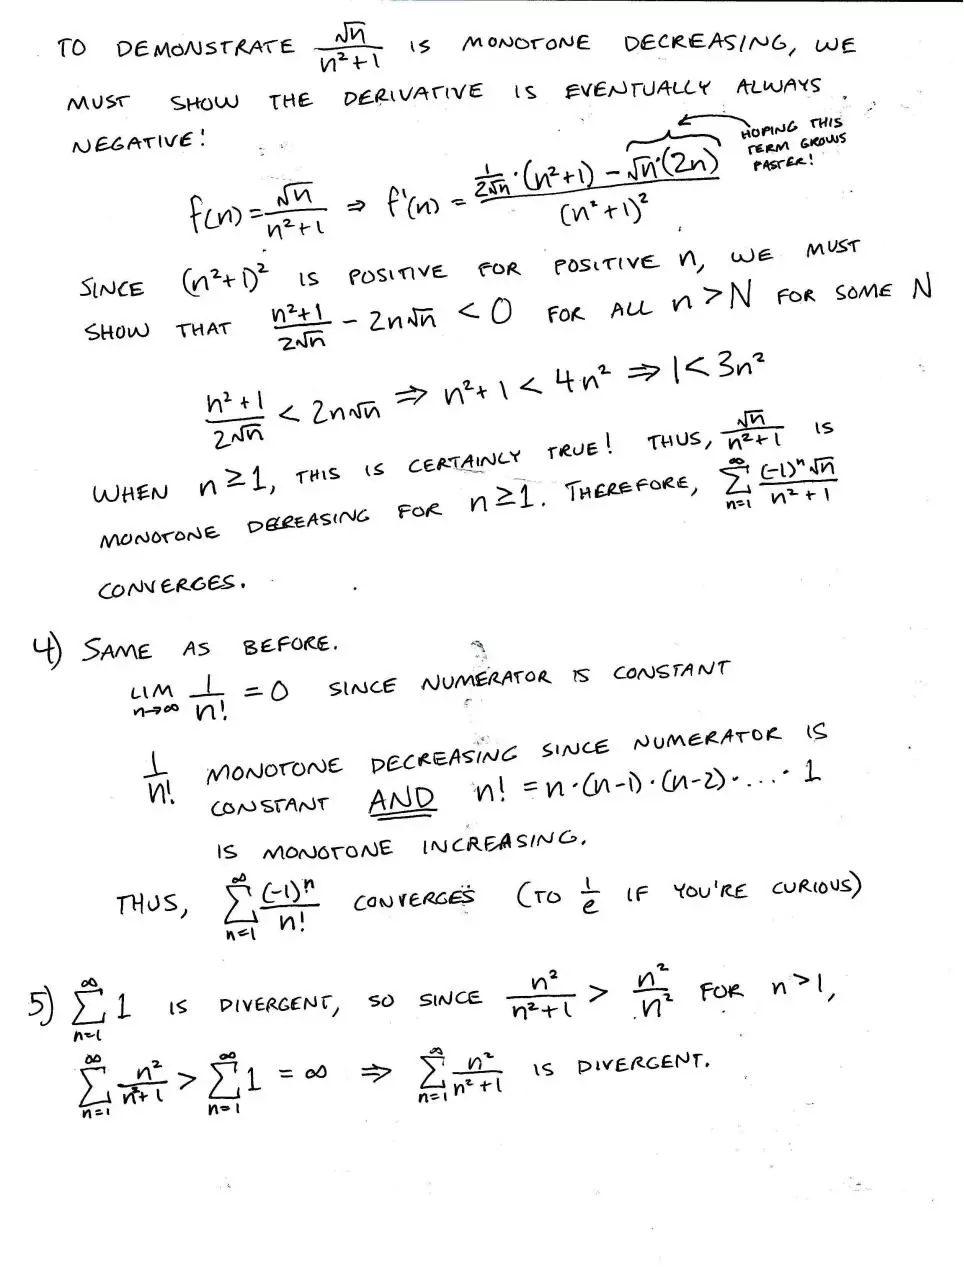 TO DEMONSTRATE √n/(n²+1) IS MONOTONE DECREASING, WE
MUST SHOW THE DERIVATIVE IS EVENTUALLY ALWAYS
NEGATIVE!
HOPING THIS
TERM GROWS
FASTER!
f(n) = √n/(n²+1) ⇒ f'(n) = (1/(2√n)·(n²+1) − √n·(2n))/(n²+1)²
SINCE (n²+1)² IS POSITIVE FOR POSITIVE n, WE MUST
SHOW THAT (n²+1)/(2√n) − 2n√n < 0 FOR ALL n > N FOR SOME N
(n²+1)/(2√n) < 2n√n ⇒ n²+1 < 4n² ⇒ 1 < 3n²
WHEN n ≥ 1, THIS IS CERTAINLY TRUE! THUS, √n/(n²+1) IS
MONOTONE DECREASING FOR n ≥ 1. THEREFORE, ∑_{n=1}^{∞} (-1)ⁿ√n/(n²+1)
CONVERGES.
4) SAME AS BEFORE.
LIM_{n→∞} 1/n! = 0 SINCE NUMERATOR IS CONSTANT
1/n! MONOTONE DECREASING SINCE NUMERATOR IS
CONSTANT AND n! = n·(n-1)·(n-2)·...·1
IS MONOTONE INCREASING.
THUS, ∑_{n=1}^{∞} (-1)ⁿ/n! CONVERGES (TO 1/e IF YOU'RE CURIOUS)
5) ∑_{n=1}^{∞} 1 IS DIVERGENT, SO SINCE n²/(n²+1) > n²/n² FOR n>1,
∑_{n=1}^{∞} n²/(n²+1) > ∑_{n=1}^{∞} 1 = ∞ ⇒ ∑_{n=1}^{∞} n²/(n²+1) IS DIVERGENT.